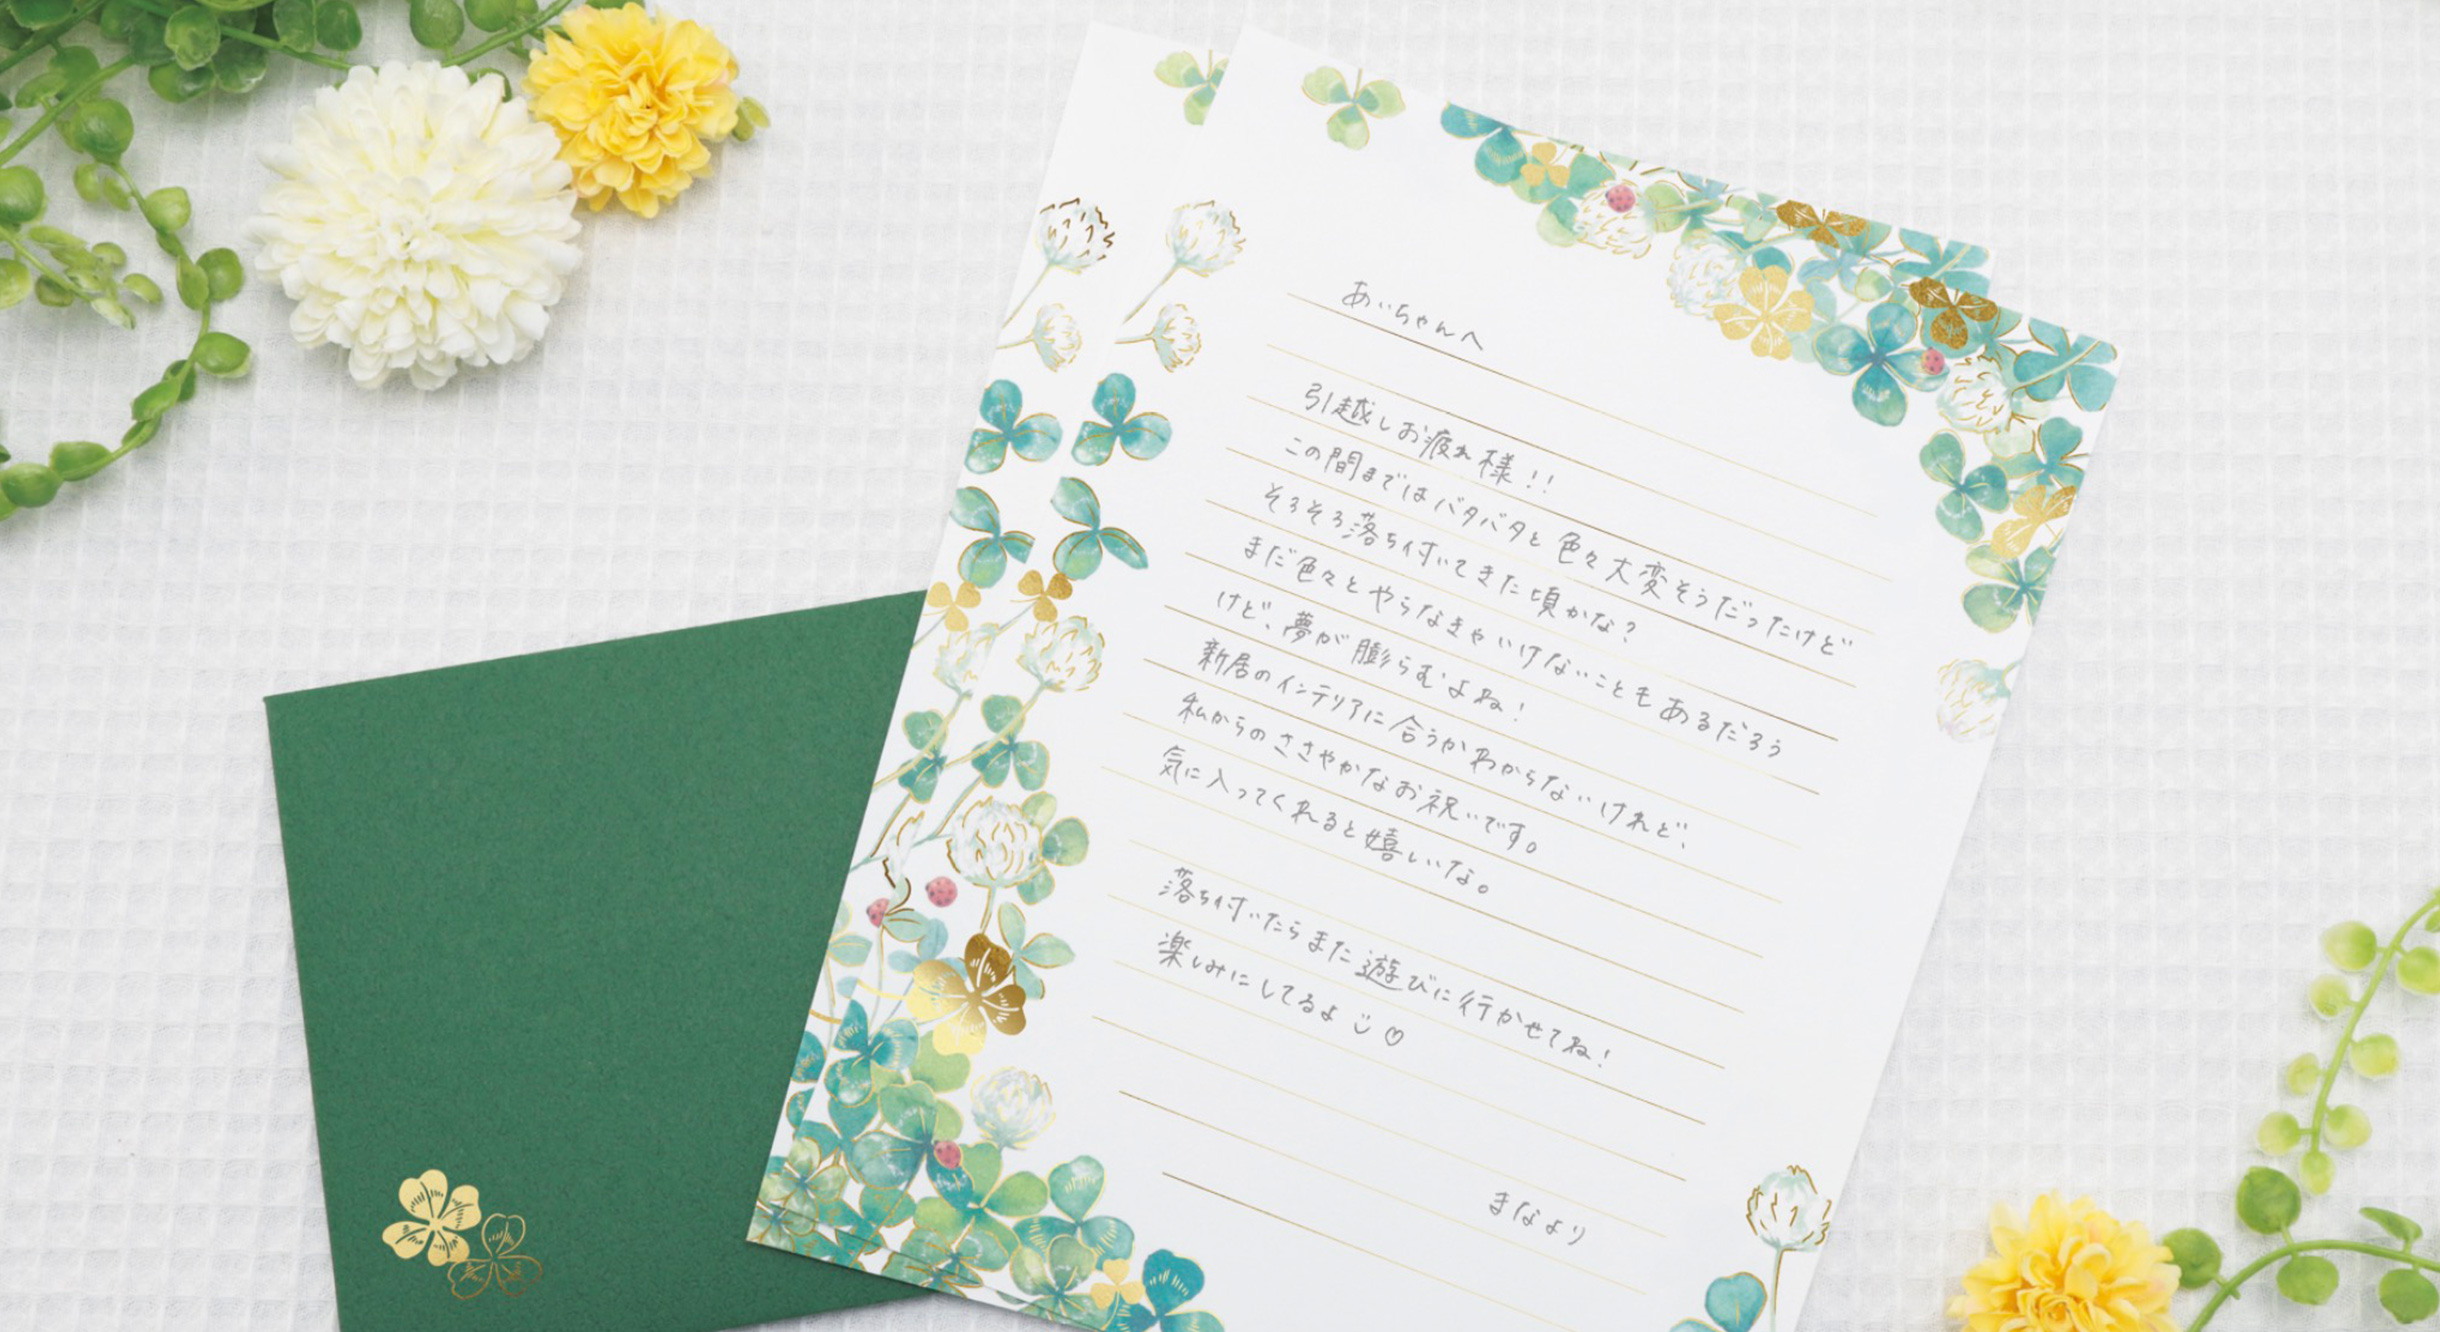 あいちゃんへ
引越しお疲れ様!!
この間まではバタバタと色々大変そうだったけど
そろそろ落ち付いてきた頃かな?
まだ色々とやらなきゃいけないこともあるだろう
けど、夢が膨らむよね!
新居のインテリアに合うかわからないけれど、
私からのささやかなお祝いです。
気に入ってくれると嬉しいな。
落ち付いたらまた遊びに行かせてね!
楽しみにしてるよ
まなより